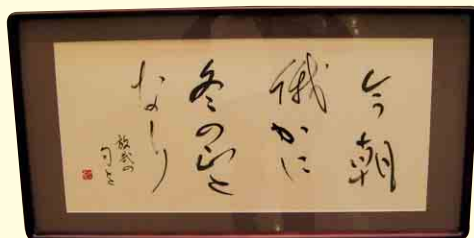 今朝
俄かに
冬の山と
なり
放哉の
句を